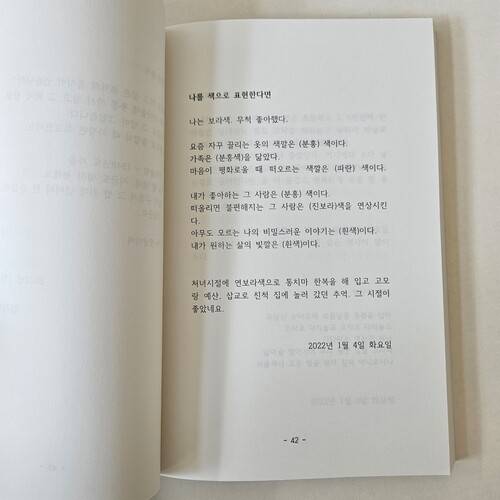 나를 색으로 표현한다면
나는 보라색. 무척 좋아했다.
요즘 자꾸 끌리는 옷의 색깔은 (분홍) 색이다.
가족은 (분홍색)을 닮았다.
마음이 평화로울 때 떠오르는 색깔은 (파란) 색이다.
내가 좋아하는 그 사람은 (분홍) 색이다.
떠올리면 불편해지는 그 사람은 (진보라)색을 연상시킨
다.
아무도 모르는 나의 비밀스러운 이야기는 (흰색)이다.
내가 원하는 삶의 빛깔은 (흰색)이다.
처녀시절에 연보라색으로 통치마 한복을 해 입고 고모
랑 예산, 삽교로 친척 집에 놀러 갔던 추억. 그 시절이
좋았네요.
2022년 1월 4일 화요일
- 42 -